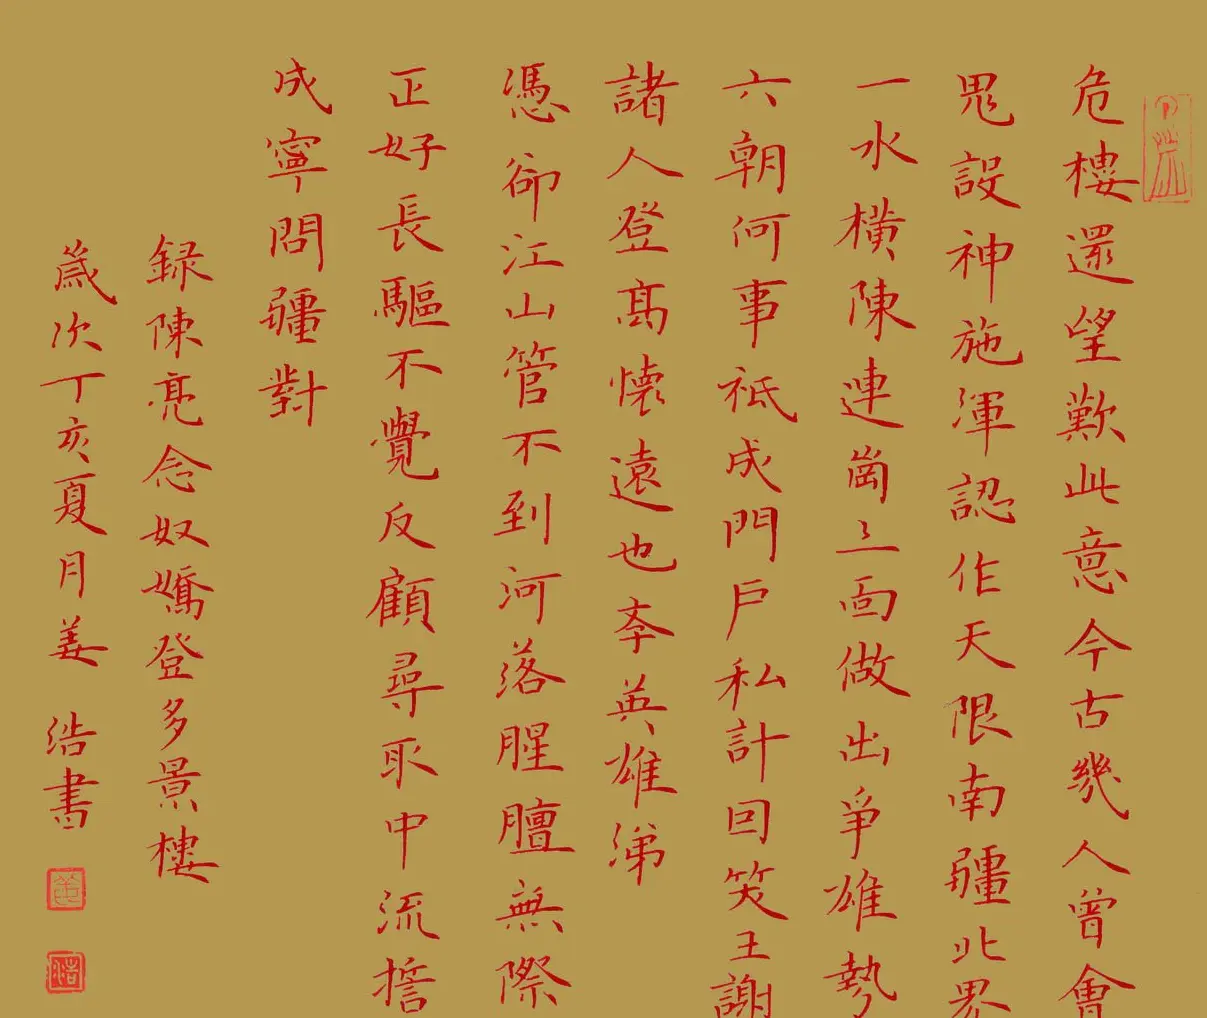 危樓還望歎此意今古幾人曾會
鬼設神施渾認作天限南疆北界
一水橫陳連崗三面做出爭雄勢
六朝何事祗成門戶私計回笑王謝
諸人登高懷遠也斈英雄涕
憑卻江山管不到河落腥膻無際
正好長驅不覺反顧尋取中流誓
成寧問疆對
録陳亮念奴嬌登多景樓
歲次丁亥夏月姜 浩書